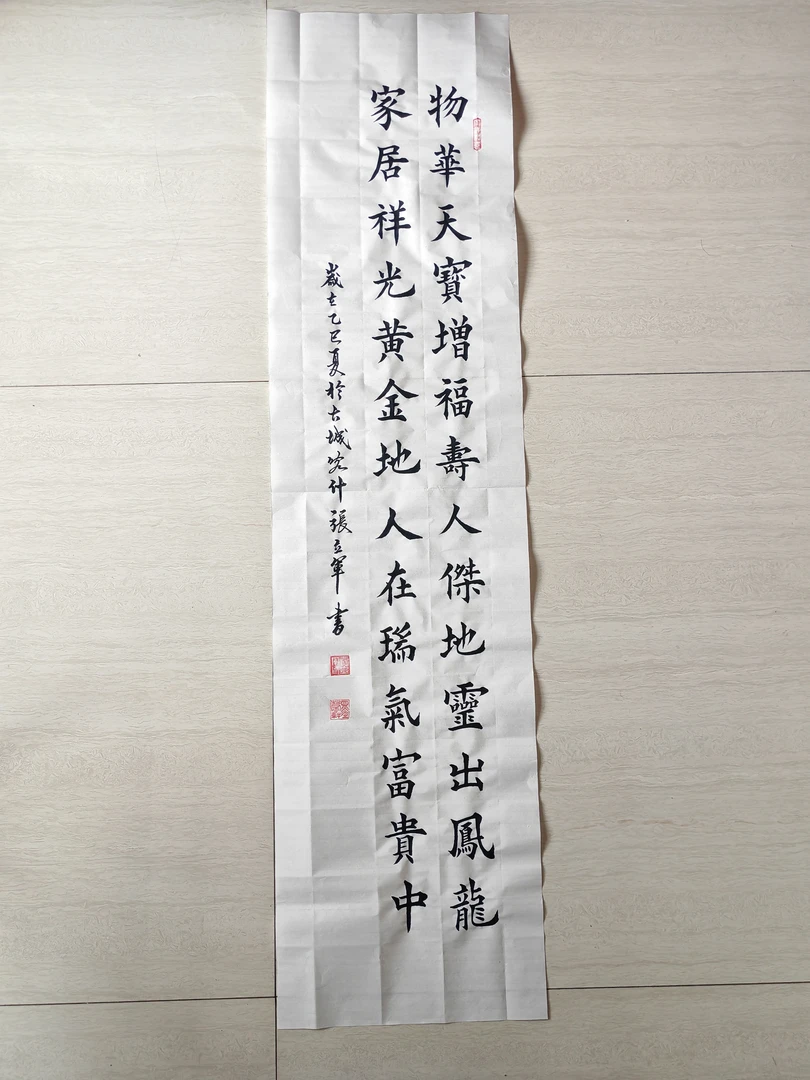 物華天寶增福壽人傑地靈出鳳龍
家居祥光黄金地人在瑞氣富貴中
歲在乙巳夏於古城喀什張立軍書